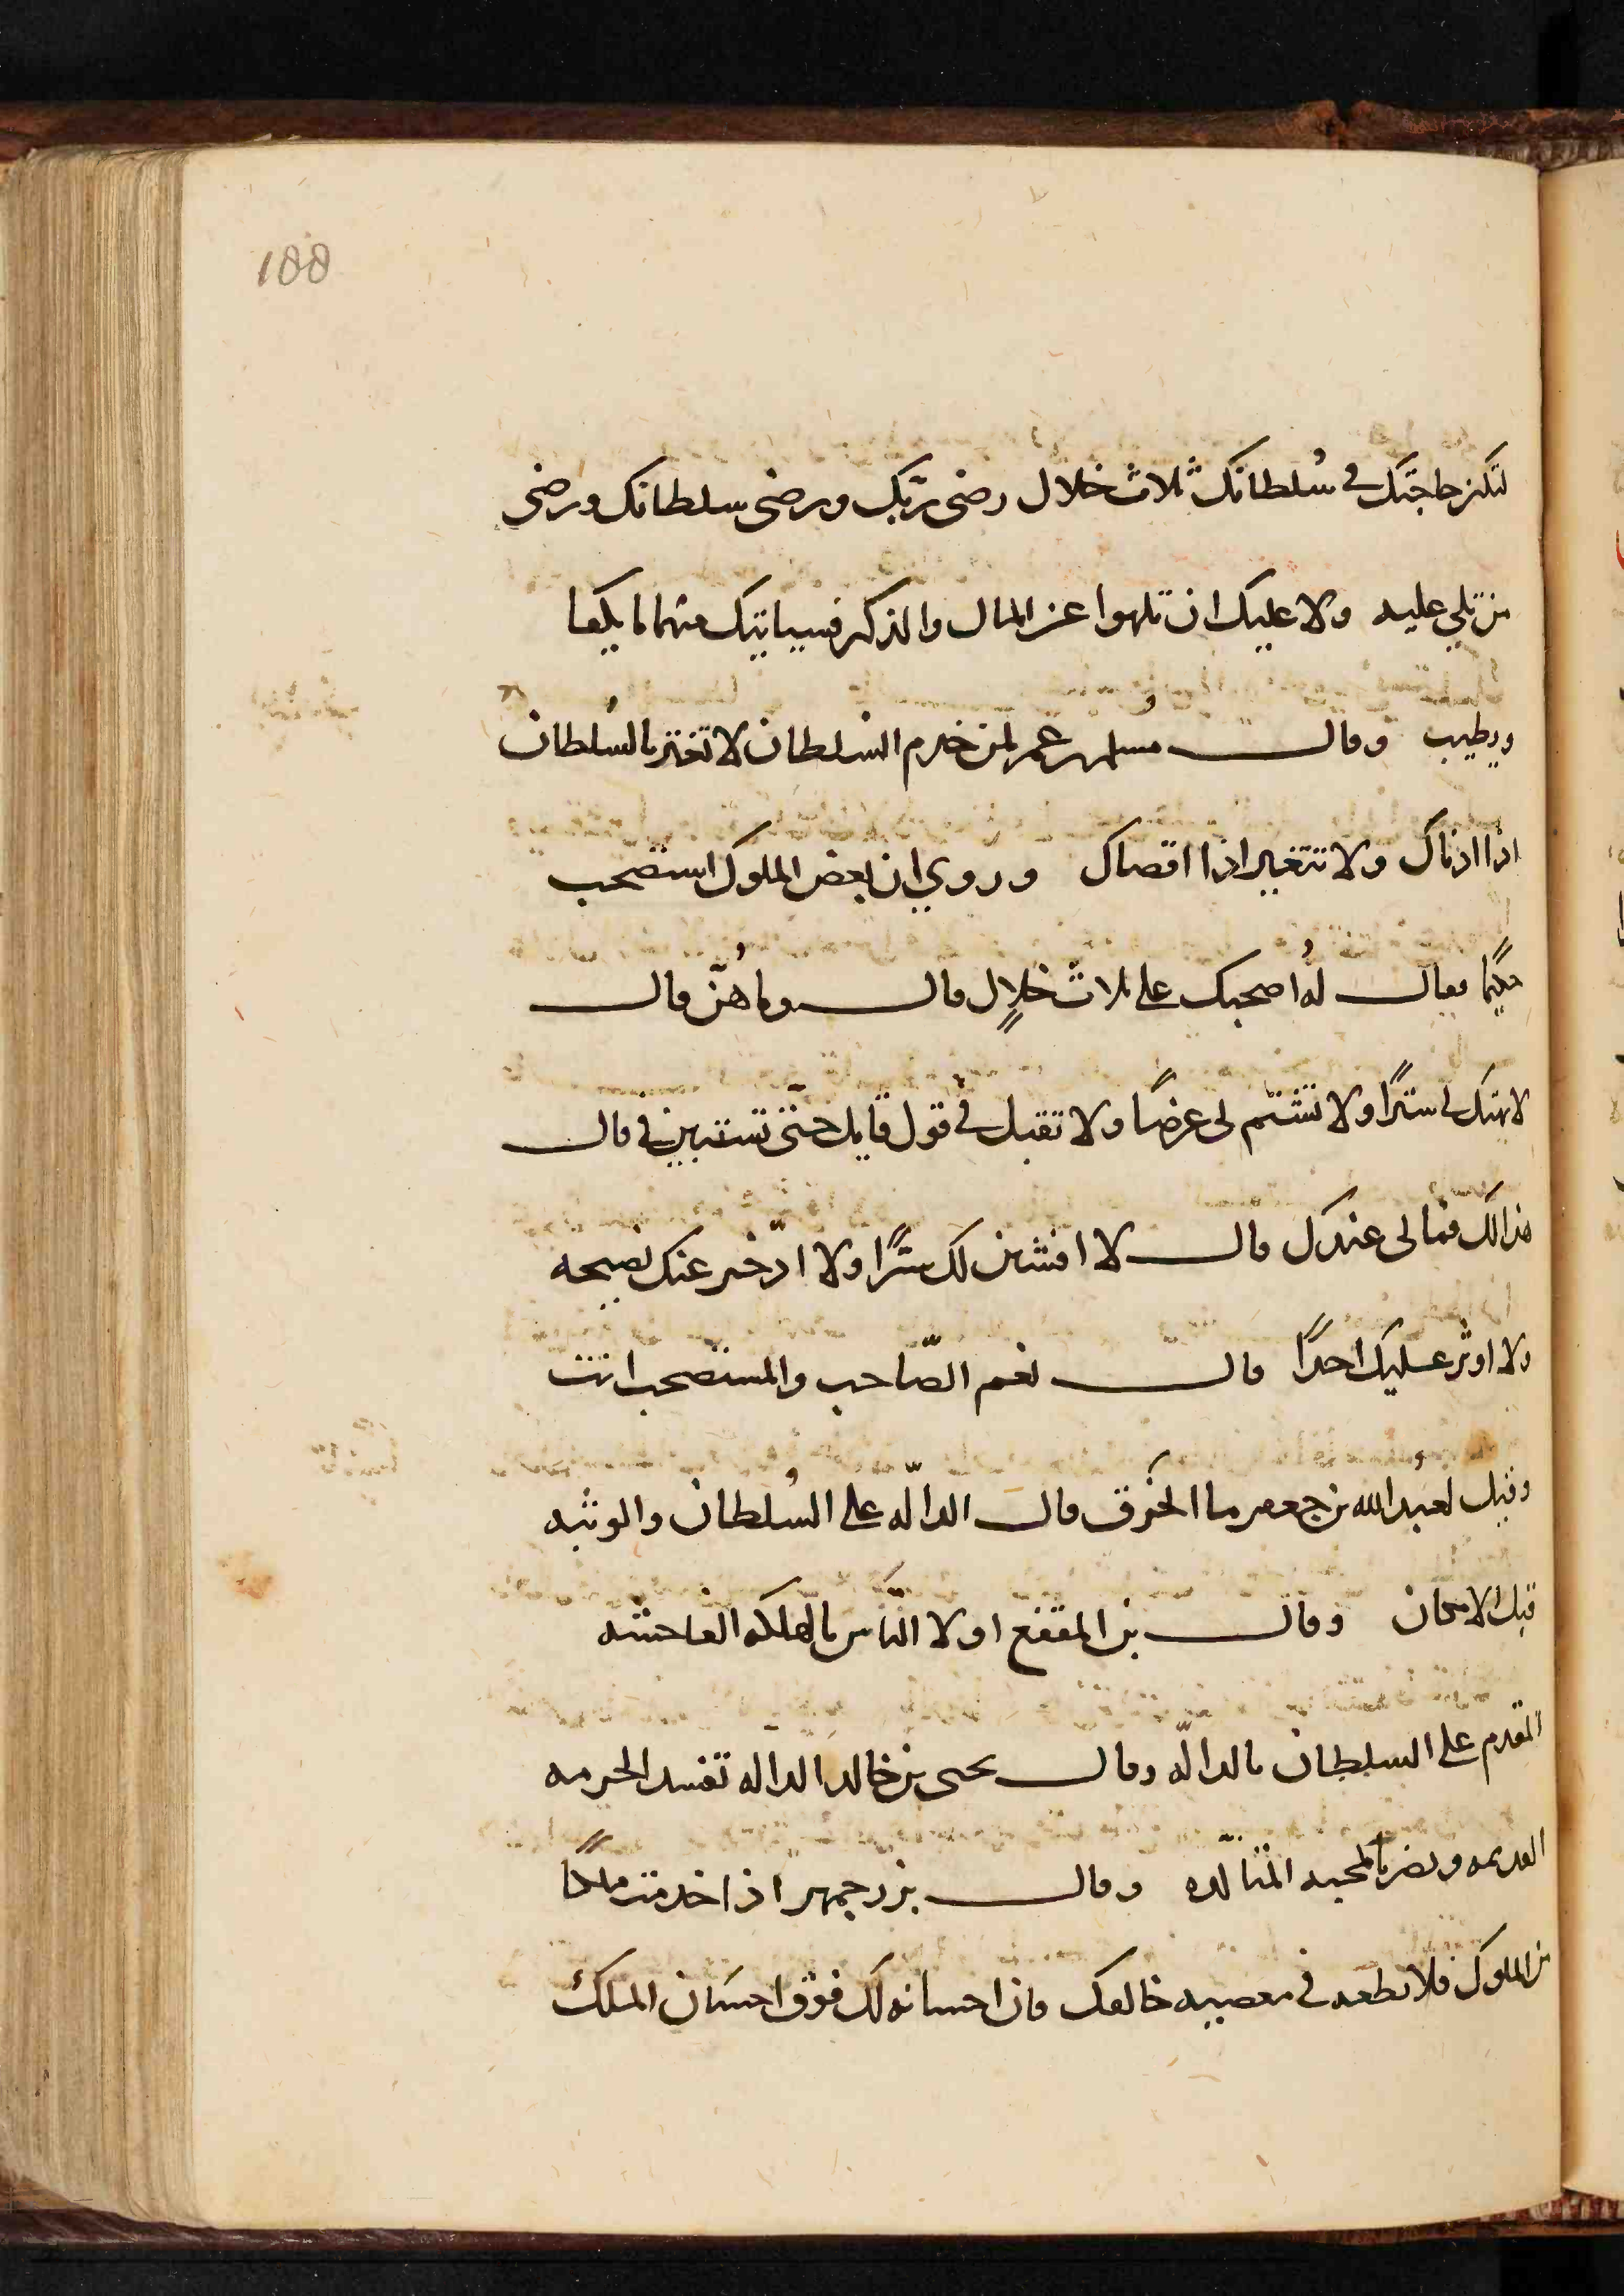 188
لتكن حاجتك في سُلطانك ثلاث خلال رضى ربّك ورضى سلطانك ورضى
من تلي عليه ولا عليك ان تلهوا عن المال والذكر فسياتيك منهما ما يكفا
ويطيب وقال مسلم بن عمر لمن خدم السلطان لا تغتر بالسُلطان
اذا ادناك ولا تتغير اذا اقصاك وروي ان بعض الملوك استصحب
حكيمًا فقال لهُ اصحبك على ثلاث خلالٍ قال وما هُنّ قال
لا تهتك لي سترًا ولا تشتم لي عرضًا ولا تقبل في قول قايل حتّى تستبين في قال
هذا لك فما لي عندك قال لا افشين لك سرًّا ولا ادّخر عنك نصيحه
ولا اوثر عليك احدًا قال نعم الصّاحب والمستصحب انت
وقيل لعبد الله بن جعفر ما الخُرق قال الدالّه على السُلطان والوثبه
قبل الامكان وقال بن المقفع اولا النّاس بالهلكه الفاحشه
المقدم على السلطان بالدالّه وقال يحيى بن خالد الدالّه تفسد الحرمه
القديمه وتضر بالمحبه المتالّده وقال بزرجمهر اذا خدمت ملكًا
من الملوك فلا تطعه في معصيه خالقك فان احسانه لك فوق احسان الملك